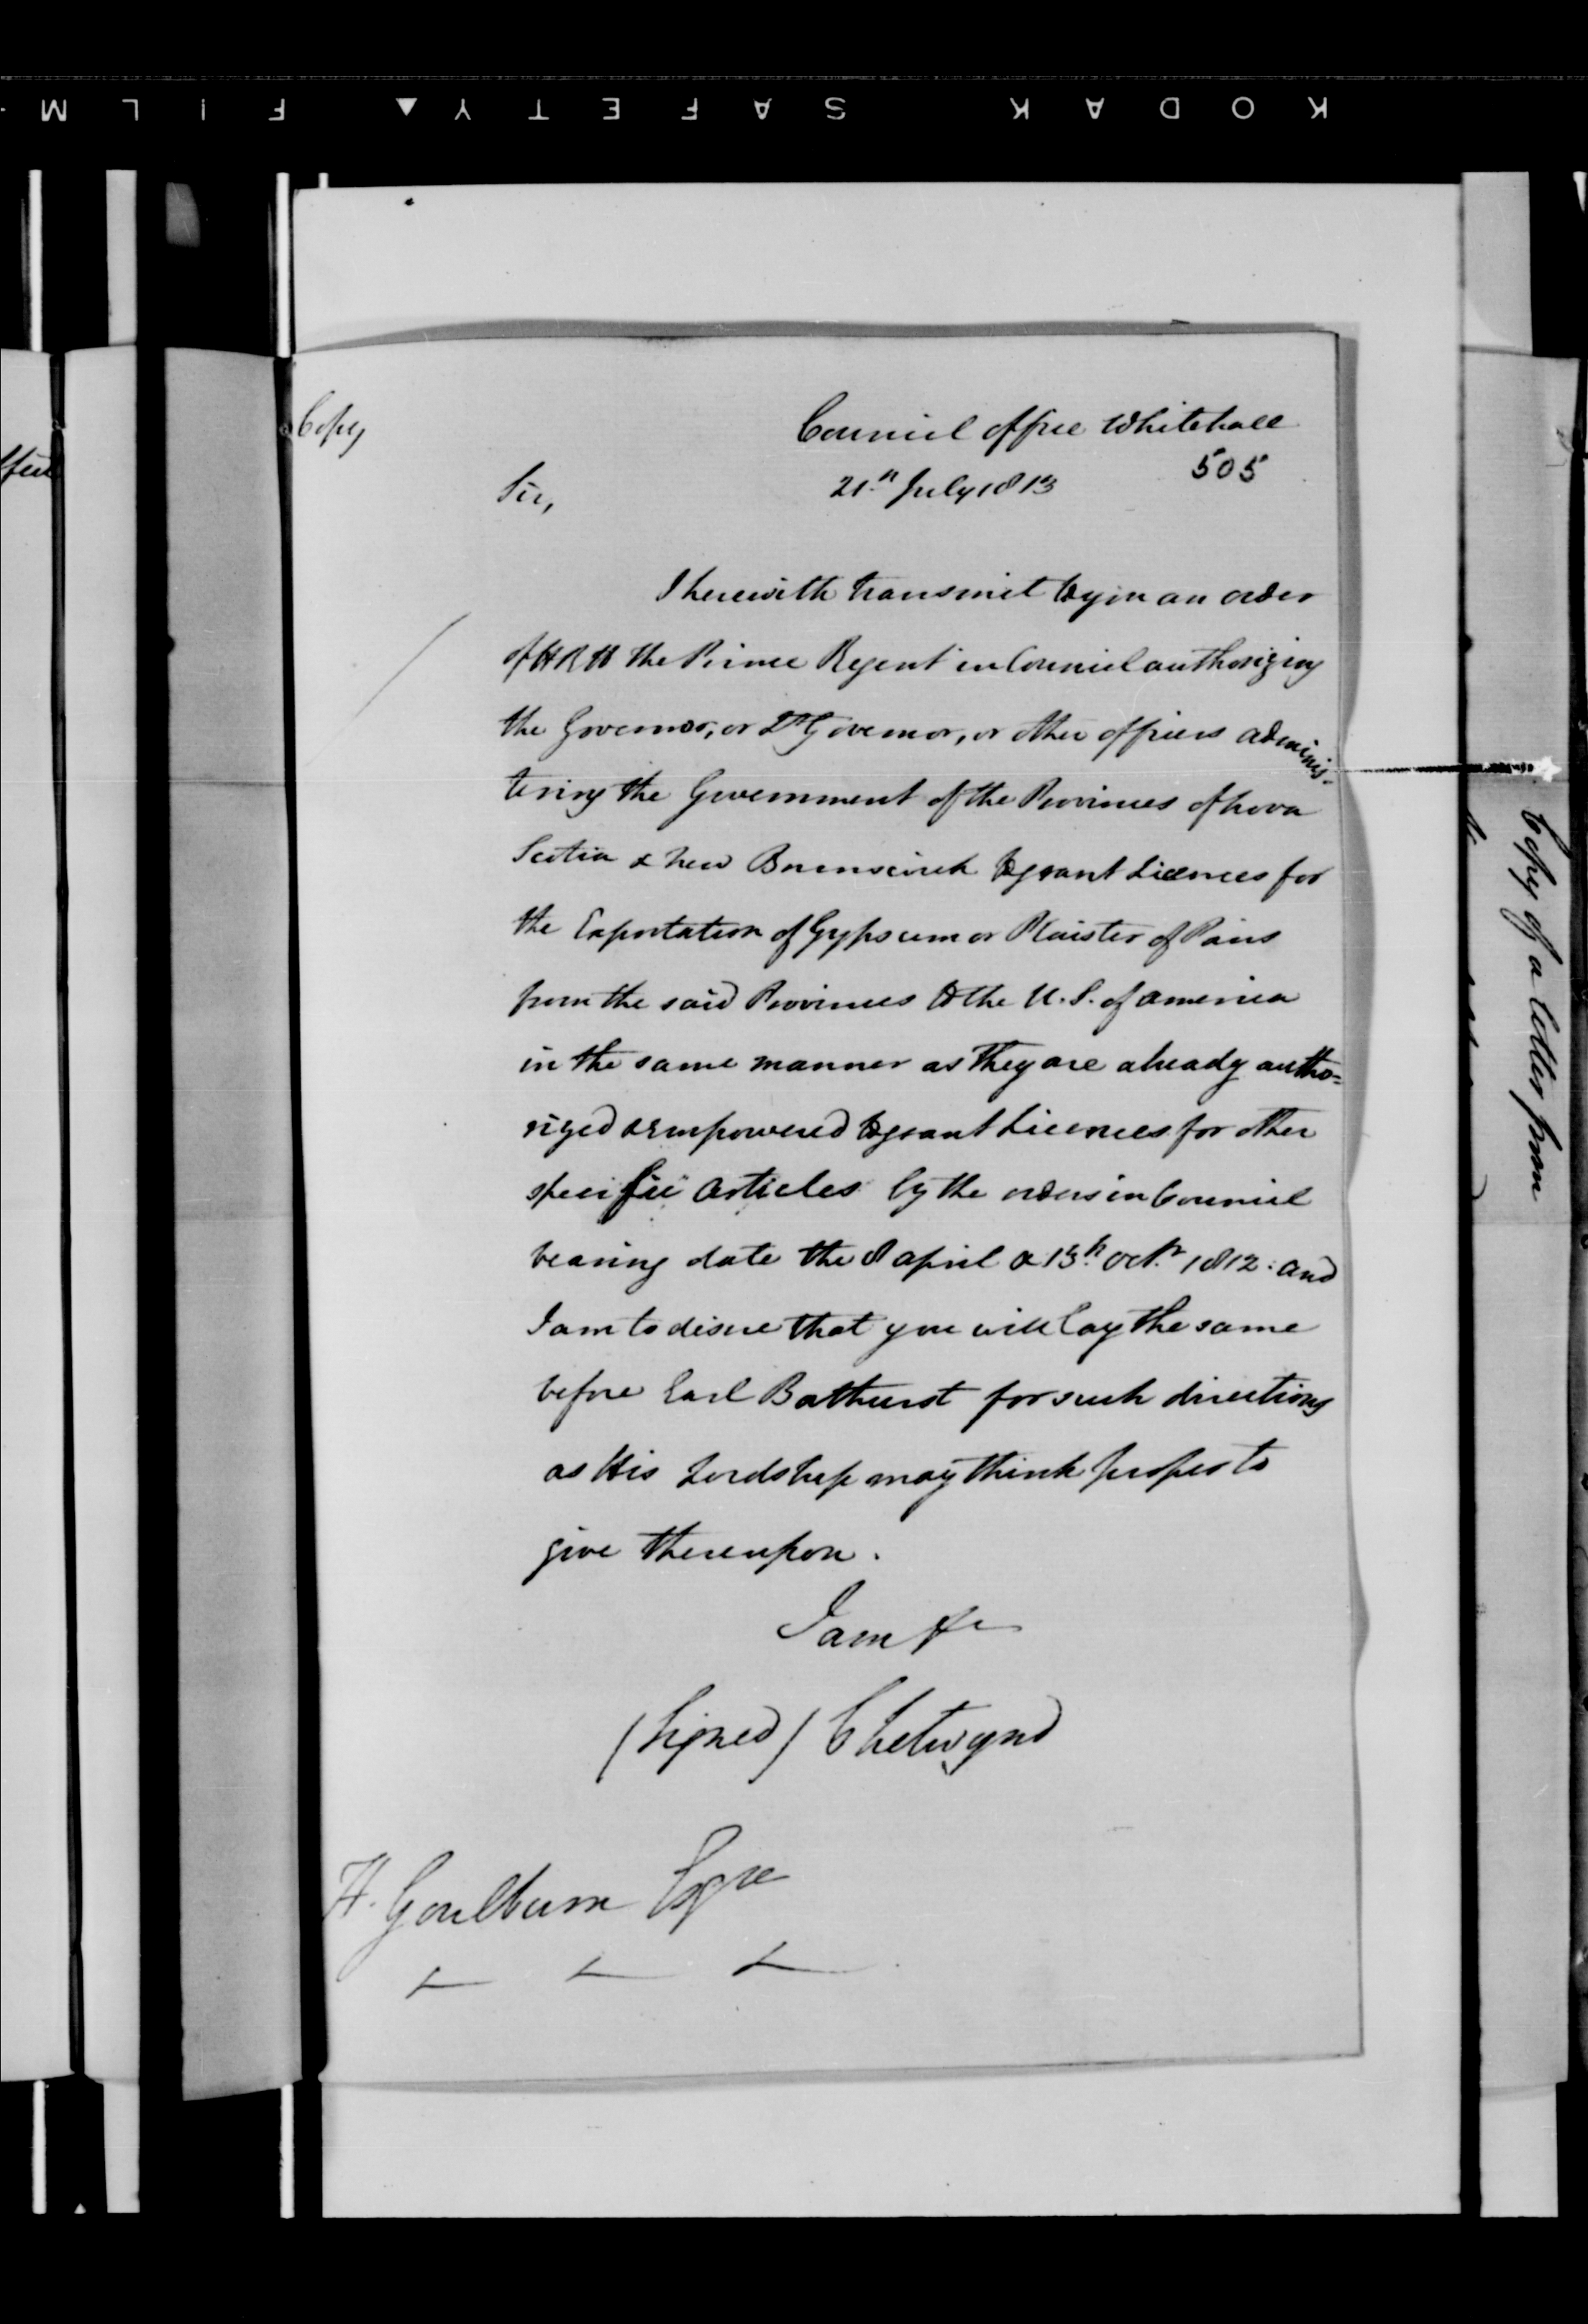 KODAK SAFETY FILM
Copy
Council office Whitehall
505
Sir,
21st July 1813
I herewith transmit to you an order
of HRH the Prince Regent in Council authorizing
the Governor, or Lt Governor, or other officers adminis-
tering the Government of the Provinces of Nova
Scotia & New Brunswick to grant Licences for
the Exportation of Gypsum or Plaister of Paris
from the said Provinces to the U. S. of america
in the same manner as they are already autho=
rized & empowered to grant Licences for other
specific articles by the orders in Council
bearing date the 8 april & 13th Octr 1812: and
I am to desire that you will lay the same
before Earl Bathurst for such directions
as His Lordship may think proper to
give thereupon.
I am &c
(Signed) Chetwynd
H. Goulburn Esqre
Copy of a letter from